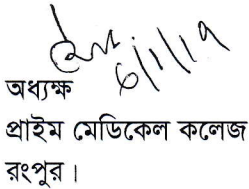 ৬/১/১৯
অধ্যক্ষ
প্রাইম মেডিকেল কলেজ
রংপুর।